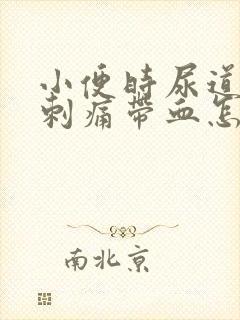 小便时尿道
刺痛带血怎
南北京